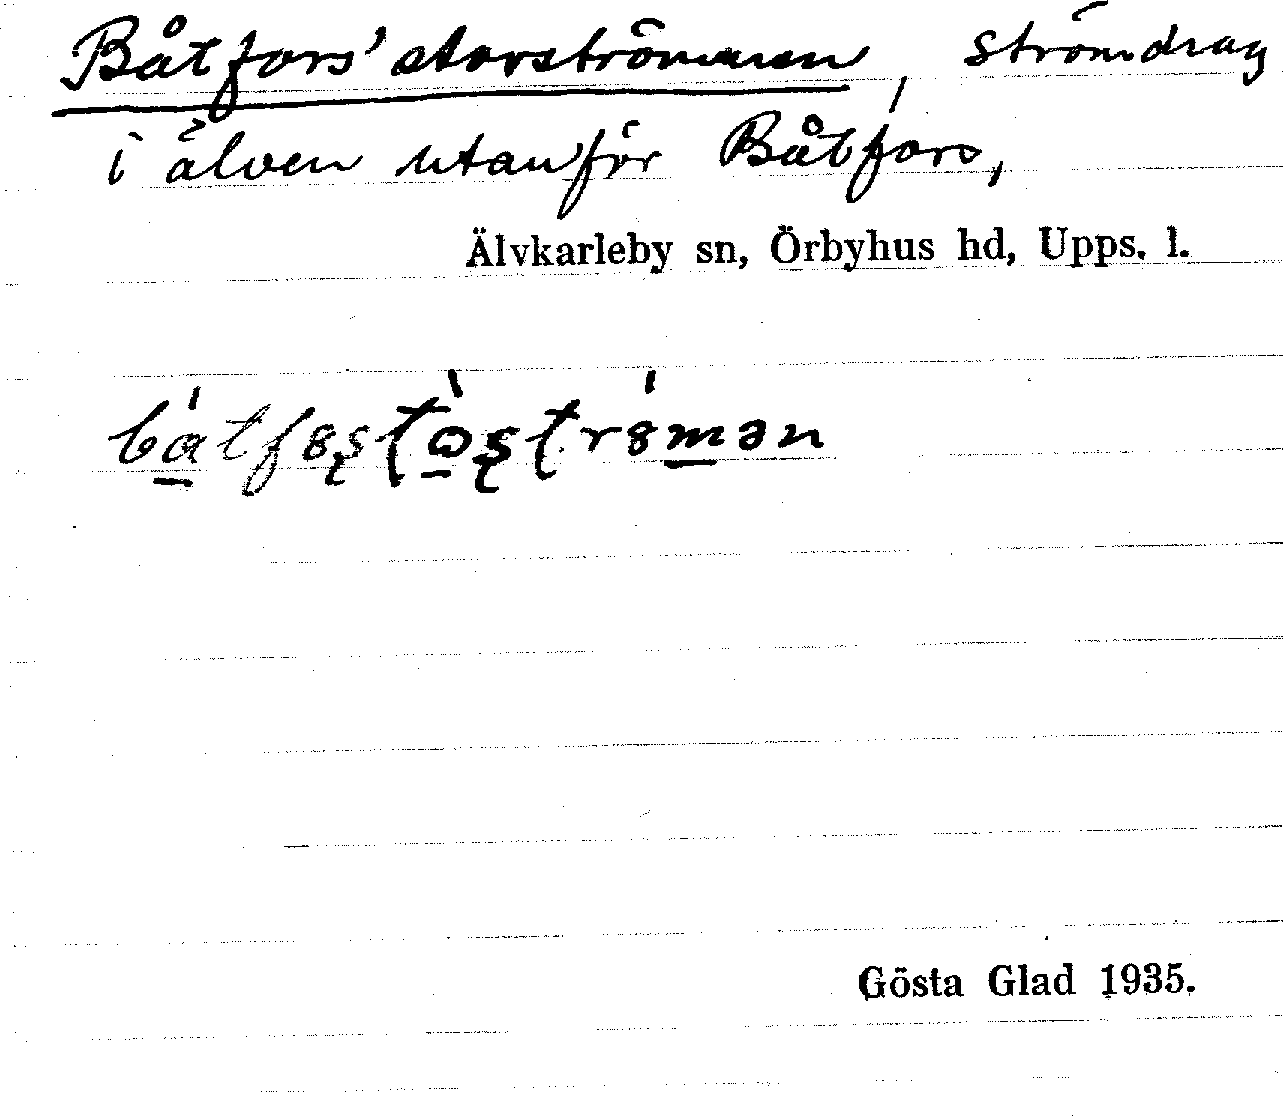 Båtfors' storströmmen, strömdrag
i älven utanför Båtfors,
Älvkarleby sn, Örbyhus hd, Upps. l.
Gösta Glad 1935.